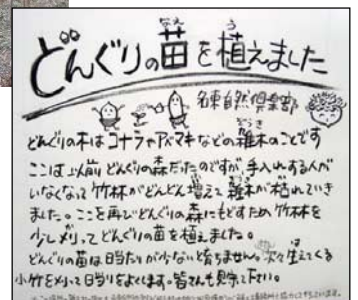 どんぐりの苗を植えました
なえ う
名東自然倶楽部
ぞうき
どんぐりの木はコナラやアベマキなどの雑木のことです
ここは以前どんぐりの森だったのですが、手入れする人が
いなくなって竹林がどんどん増えて雑木が枯れていき
ました。ここを再びどんぐりの森にもどすため竹林を
少しメリってどんぐりの苗を植えました。
どんぐりの苗は日当たりが少ないと育ちません。次々生えてくる
小竹をメリって日当りをよくします。皆さんも見守って下さい。